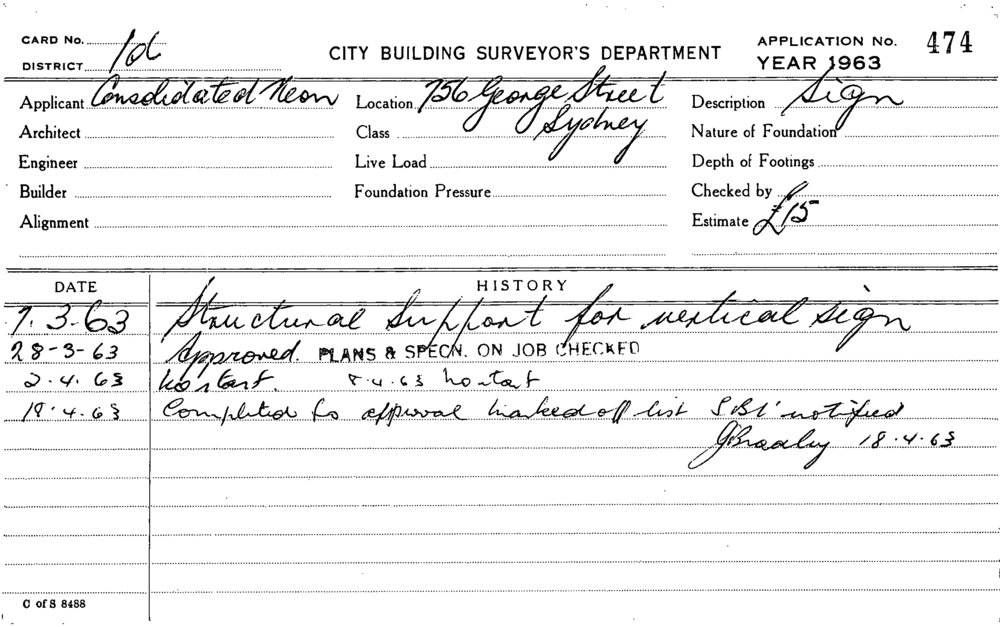 CARD No. 1d
DISTRICT
CITY BUILDING SURVEYOR'S DEPARTMENT
APPLICATION No. 474
YEAR 1963
Applicant Consolidated Neon
Location 756 George Street
Sydney
Description Sign
Architect
Class
Nature of Foundation
Engineer
Live Load
Depth of Footings
Builder
Foundation Pressure
Checked by
Alignment
Estimate £15
DATE HISTORY
7.3.63 Structural Support for vertical sign
28-3-63 Approved. PLANS & SPECN. ON JOB CHECKED
2.4.63 No start. 8.4.63 No start
18.4.63 Completed to approval marked off list SBI notified
18.4.63
C of S 8488